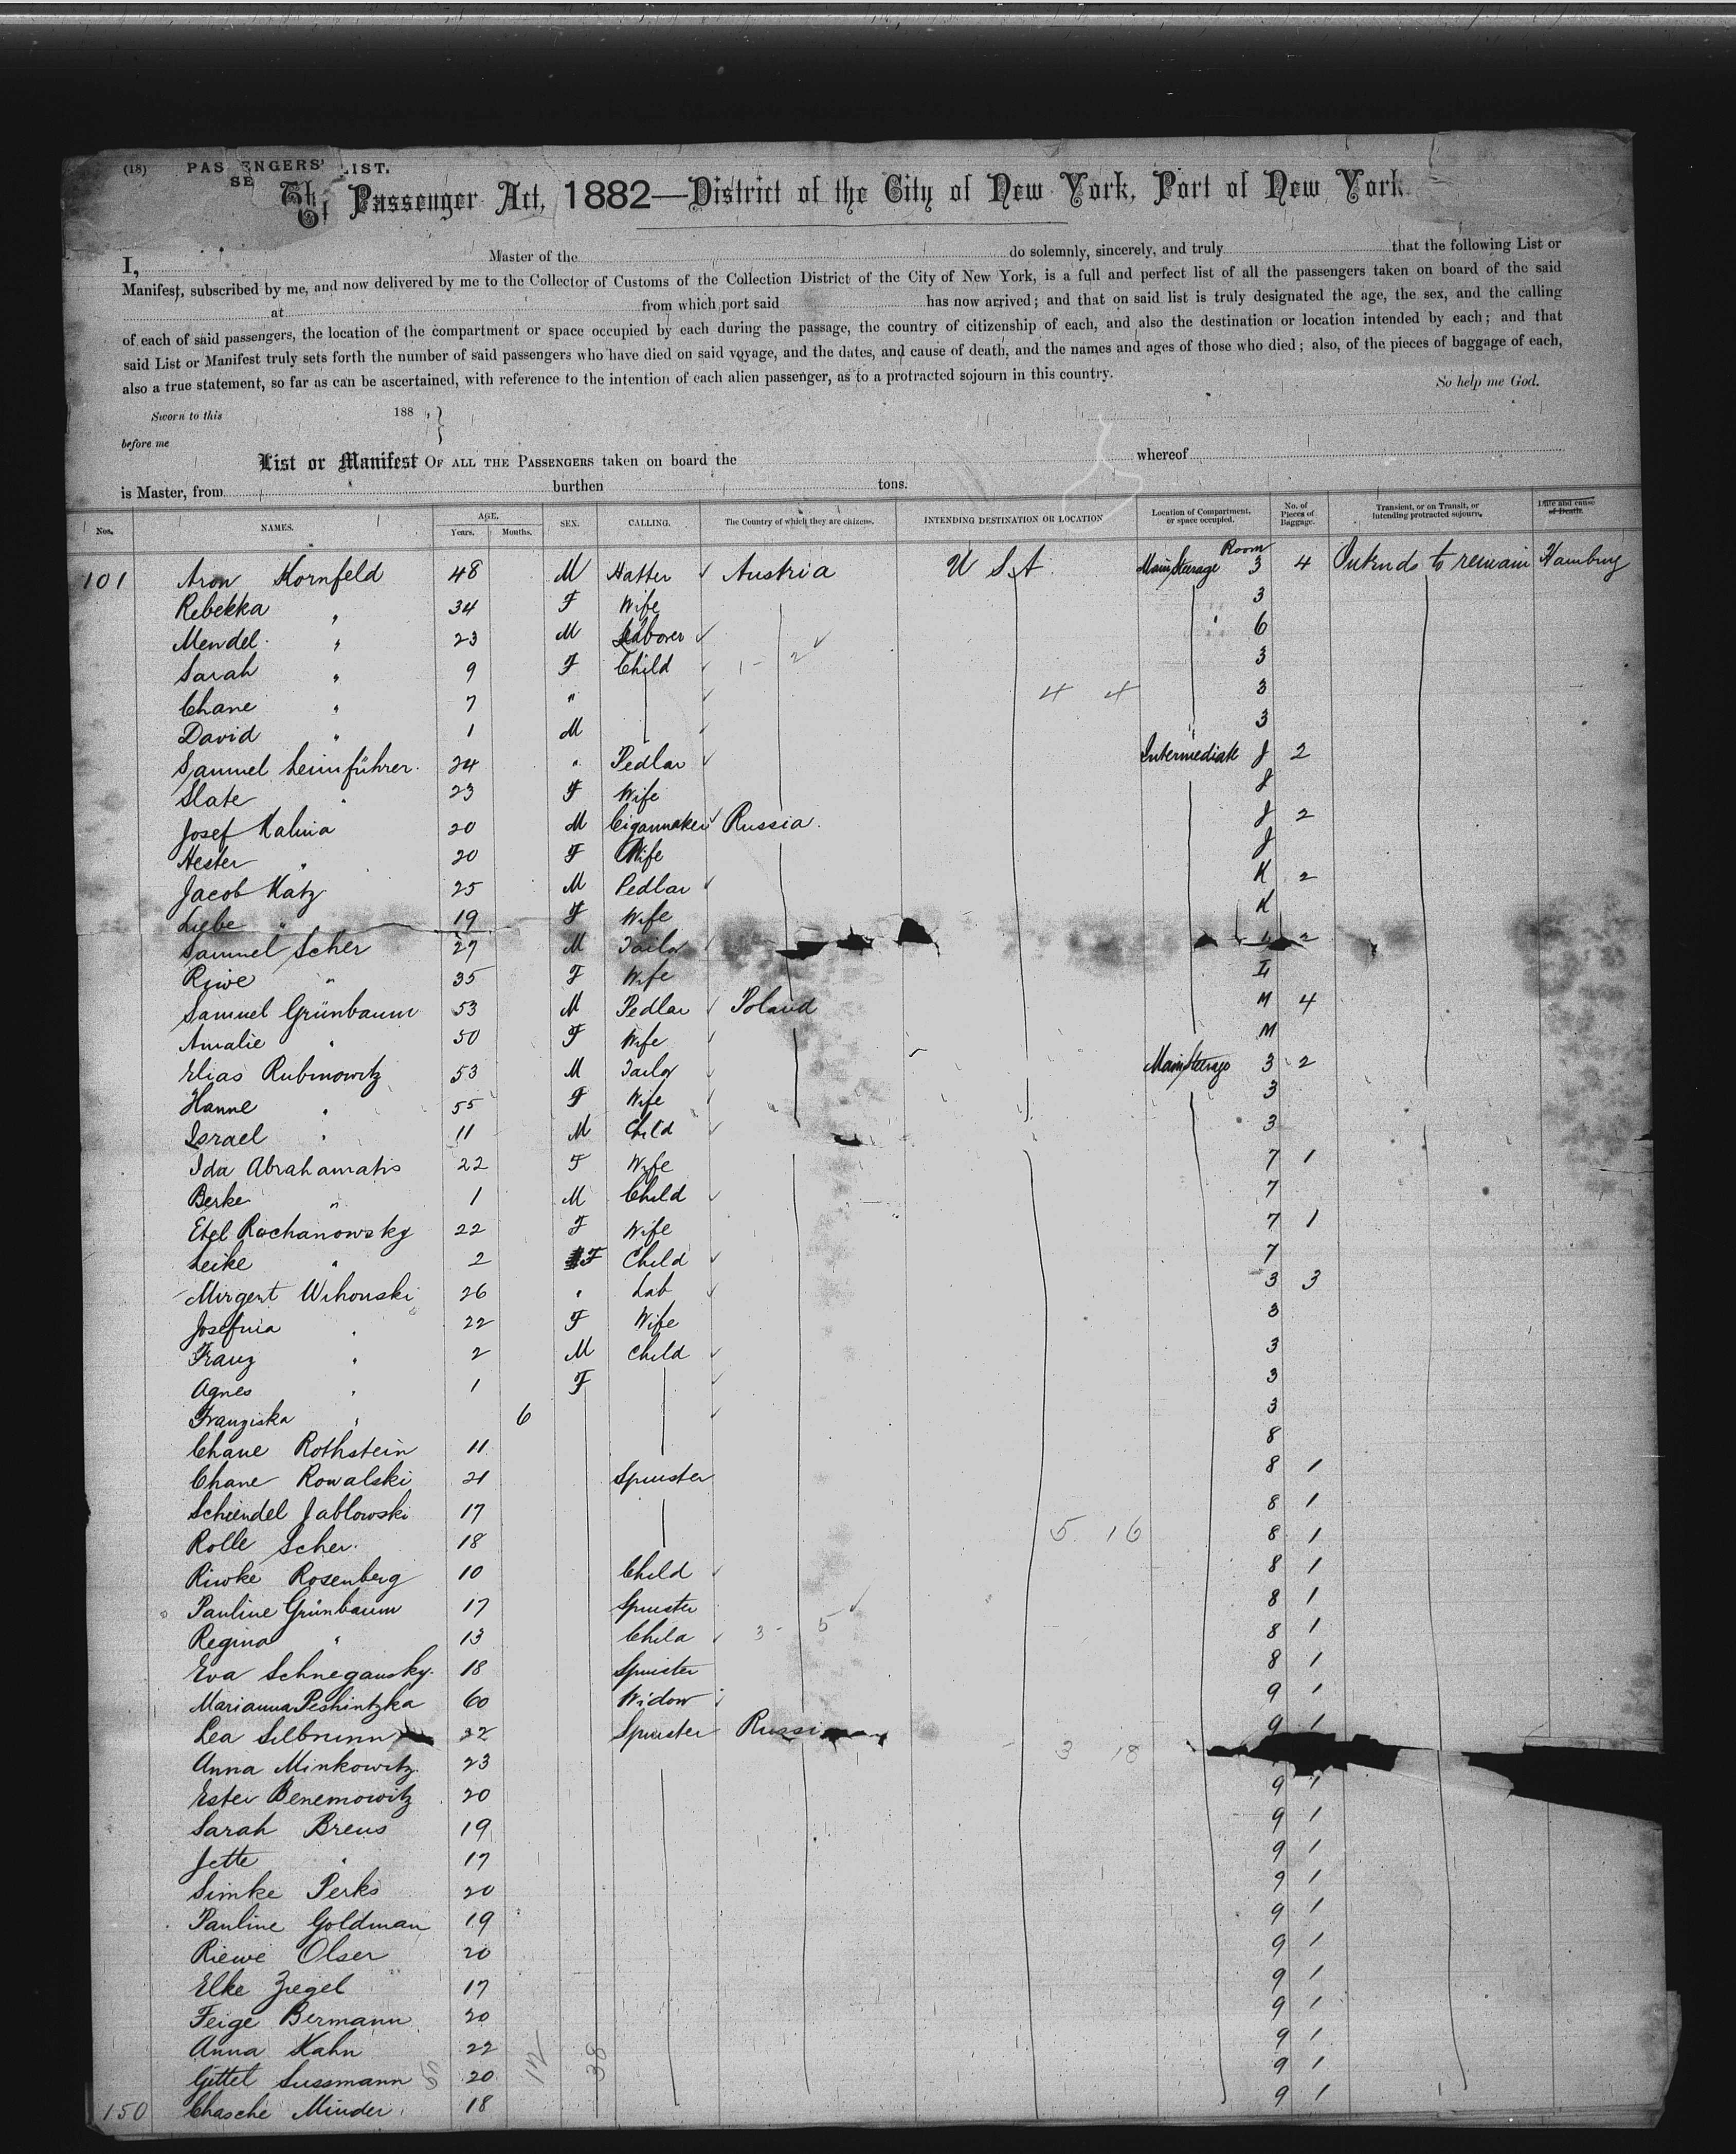 (18) PAS ENGERS' LIST.
SE
Passenger Act, 1882—District of the City of New York, Port of New York
I, Master of the do solemnly, sincerely, and truly that the following List or
Manifest, subscribed by me, and now delivered by me to the Collector of Customs of the Collection District of the City of New York, is a full and perfect list of all the passengers taken on board of the said
at from which port said has now arrived; and that on said list is truly designated the age, the sex, and the calling
of each of said passengers, the location of the compartment or space occupied by each during the passage, the country of citizenship of each, and also the destination or location intended by each; and that
said List or Manifest truly sets forth the number of said passengers who have died on said voyage, and the dates, and cause of death, and the names and ages of those who died; also, of the pieces of baggage of each,
also a true statement, so far as can be ascertained, with reference to the intention of each alien passenger, as to a protracted sojourn in this country. So help me God.
Sworn to this 188 , }
before me
List or Manifest OF ALL THE PASSENGERS taken on board the whereof
is Master, from burthen tons.
Nos. NAMES. AGE. Years. Months. SEX. CALLING. The Country of which they are citizens. INTENDING DESTINATION OR LOCATION Location of Compartment, or space occupied. No. of Pieces of Baggage. Transient, or on Transit, or intending protracted sojourn. Date and cause of Death.
Room
101 Aron Kornfeld 48 M Hatter Austria U S A Main Steerage 3 4 Intends to remain Hamburg
Rebekka " 34 F Wife 3
Mendel " 23 M Laborer 6
Sarah " 9 F Child 1 - 2 3
Chane " 7 " 4 4 3
David " 1 M 3
Samuel Leimführer 24 " Pedlar Intermediate J 2
Slate " 23 F Wife J
Josef Kalina 20 M Cigarmaker Russia. J 2
Hester " 20 F Wife J
Jacob Katz 25 M Pedlar K 2
Liebe " 19 F Wife K
Samuel Scher 27 M Tailor L 2
Riwe " 35 F Wife L
Samuel Grünbaum 53 M Pedlar Poland M 4
Amalie " 50 F Wife M
Elias Rubinowitz 53 M Tailor Main Steerage 3 2
Hanne " 55 F Wife 3
Israel " 11 M Child 3
Ida Abrahamatis 22 F Wife 7 1
Berke " 1 M Child 7
Etel Rochanowsky 22 F Wife 7 1
Leike " 2 F Child 7
Mirgent Wihonski 26 " Lab 3 3
Josefina " 22 F Wife 3
Franz " 2 M Child 3
Agnes " 1 F 3
Franziska " 6 3
Chane Rothstein 11 8
Chane Kowalski 21 Spinster 8 1
Scheindel Jablowski 17 8 1
Rolle Scher 18 5 16 8 1
Riwke Rosenberg 10 Child 8 1
Pauline Grünbaum 17 Spinster 8 1
Regina " 13 Child 3 - 5 8 1
Eva Schnegausky 18 Spinster 8 1
Marianna Peshintzka 60 Widow 9 1
Lea Silbrunn 22 Spinster Russi 9 1
Anna Minkowitz 23 3 18
Ester Benemowitz 20 9 1
Sarah Breus 19 9 1
Jette " 17 9 1
Simke Perks 20 9 1
Pauline Goldman 19 9 1
Riewe Olser 20 9 1
Elke Ziegel 17 9 1
Feige Bermann 20 9 1
Anna Kahn 22 9 1
Gittel Sussmann 20 12 38 9 1
150 Chasche Minder 18 9 1